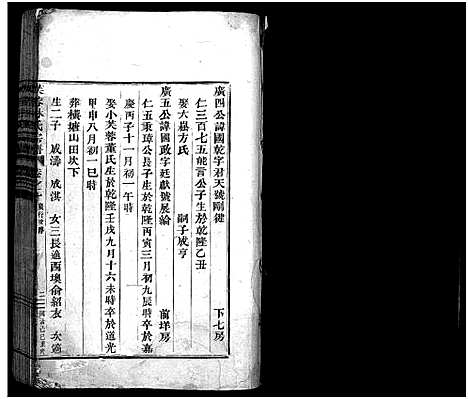 廣四公諱國乾字君天號剛健　下七房
仁三百七五能言公子生於乾隆乙丑
娶大崧方氏　嗣子成亨
廣五公諱國政字廷獻號展綸　前垟房
仁五秉璋公長子生於乾隆丙寅三月初九辰時卒於嘉
慶丙子十一月初一午時
娶小芙蓉董氏生於乾隆壬戌九月十六未時卒於道光
甲申八月初一巳時
葬橫塘山田坎下
生二子　成濤　成淇　女三長適西墺俞紹友　次適
林氏宗譜